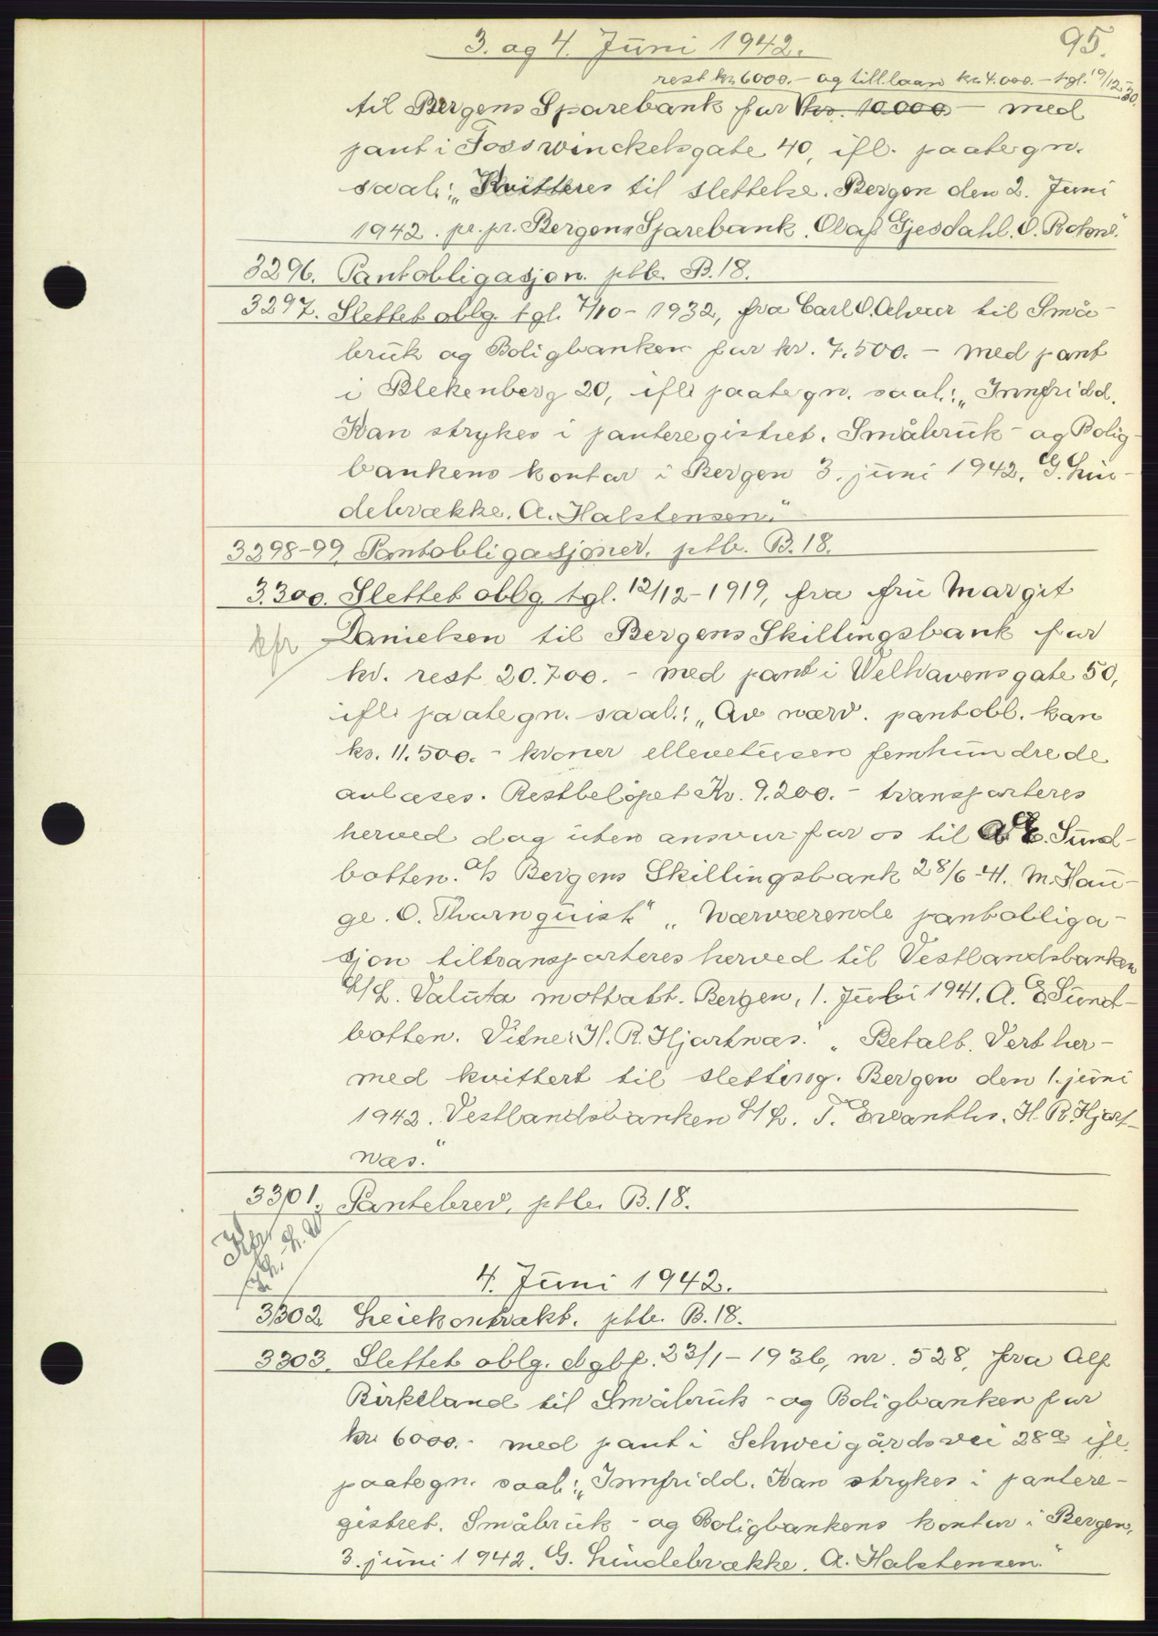 3. og 4. Juni 1942.
95.
rest kr 6000.- og till.laan kr. 4.000.- tgl. 19/12-30.
til Bergens Sparebank for kr. 10.000 - med
pant i Fosswinckelsgate 40, ifl. paategn.
saal.: „Kvitteres til slettelse. Bergen den 2. Juni
1942. pr. pr. Bergens Sparebank. Olaf Gjesdahl. O.
3296. Pantobligasjon. ptb. B.18.
3297. Slettet oblg. tgl. 7/10-1932, fra Carl O. Alver til Små-
bruk og Boligbanken for kr. 7.500.- med pant
i Blekenberg 20, ifl. paategn. saal.: „Innfridd.
Kan strykes i panteregistret. Småbruk- og Bolig-
bankens kontor i Bergen 3. juni 1942. G. Lin-
debrække. A. Halstensen."
3298-99. Pantobligasjoner. ptb. B.18.
3300. Slettet oblg. tgl. 12/12-1919, fra fru Margit
kfr Danielsen til Bergens Skillingsbank for
kr. rest 20.700.- med pant i Welhavensgate 50,
ifl. paategn. saal.: „Av nærv. pantobl. kan
kr. 11.500.- kroner ellevetusen femhundrede
avlæses. Restbeløpet Kr. 9.200.- transporteres
herved dag uten ansvar for os til A. E. Sund-
botten. A/S Bergens Skillingsbank 28/6-41. M. Hau-
ge. O. Thornquist" „Nærværende pantobliga-
sjon tiltransporteres herved til Vestlandsbanken
L/L. Valuta mottatt. Bergen, 1. Juli 1941. A. E. Sund-
botten. Vitne: H. R. Hjartnæs." „Betalt. Vert her-
med kvittert til sletting. Bergen den 1. juni
1942. Vestlandsbanken L/L. T. H. R. Hjart-
næs."
3301. Pantebrev, ptb. B.18.
Kfr
4. Juni 1942.
3302 Leiekontrakt. ptb. B.18.
3303. Slettet oblg. dgbf. 23/1-1936, nr. 528, fra Alf
Birkeland til Småbruk- og Boligbanken for
kr. 6000.- med pant i Schweigårdsvei 28a ifl.
paategn. saal.: „Innfridd. Kan strykes i pantere-
gistret. Småbruk- og Boligbankens kontor i Bergen,
3. juni 1942. G. Lindebrække. A. Halstensen."